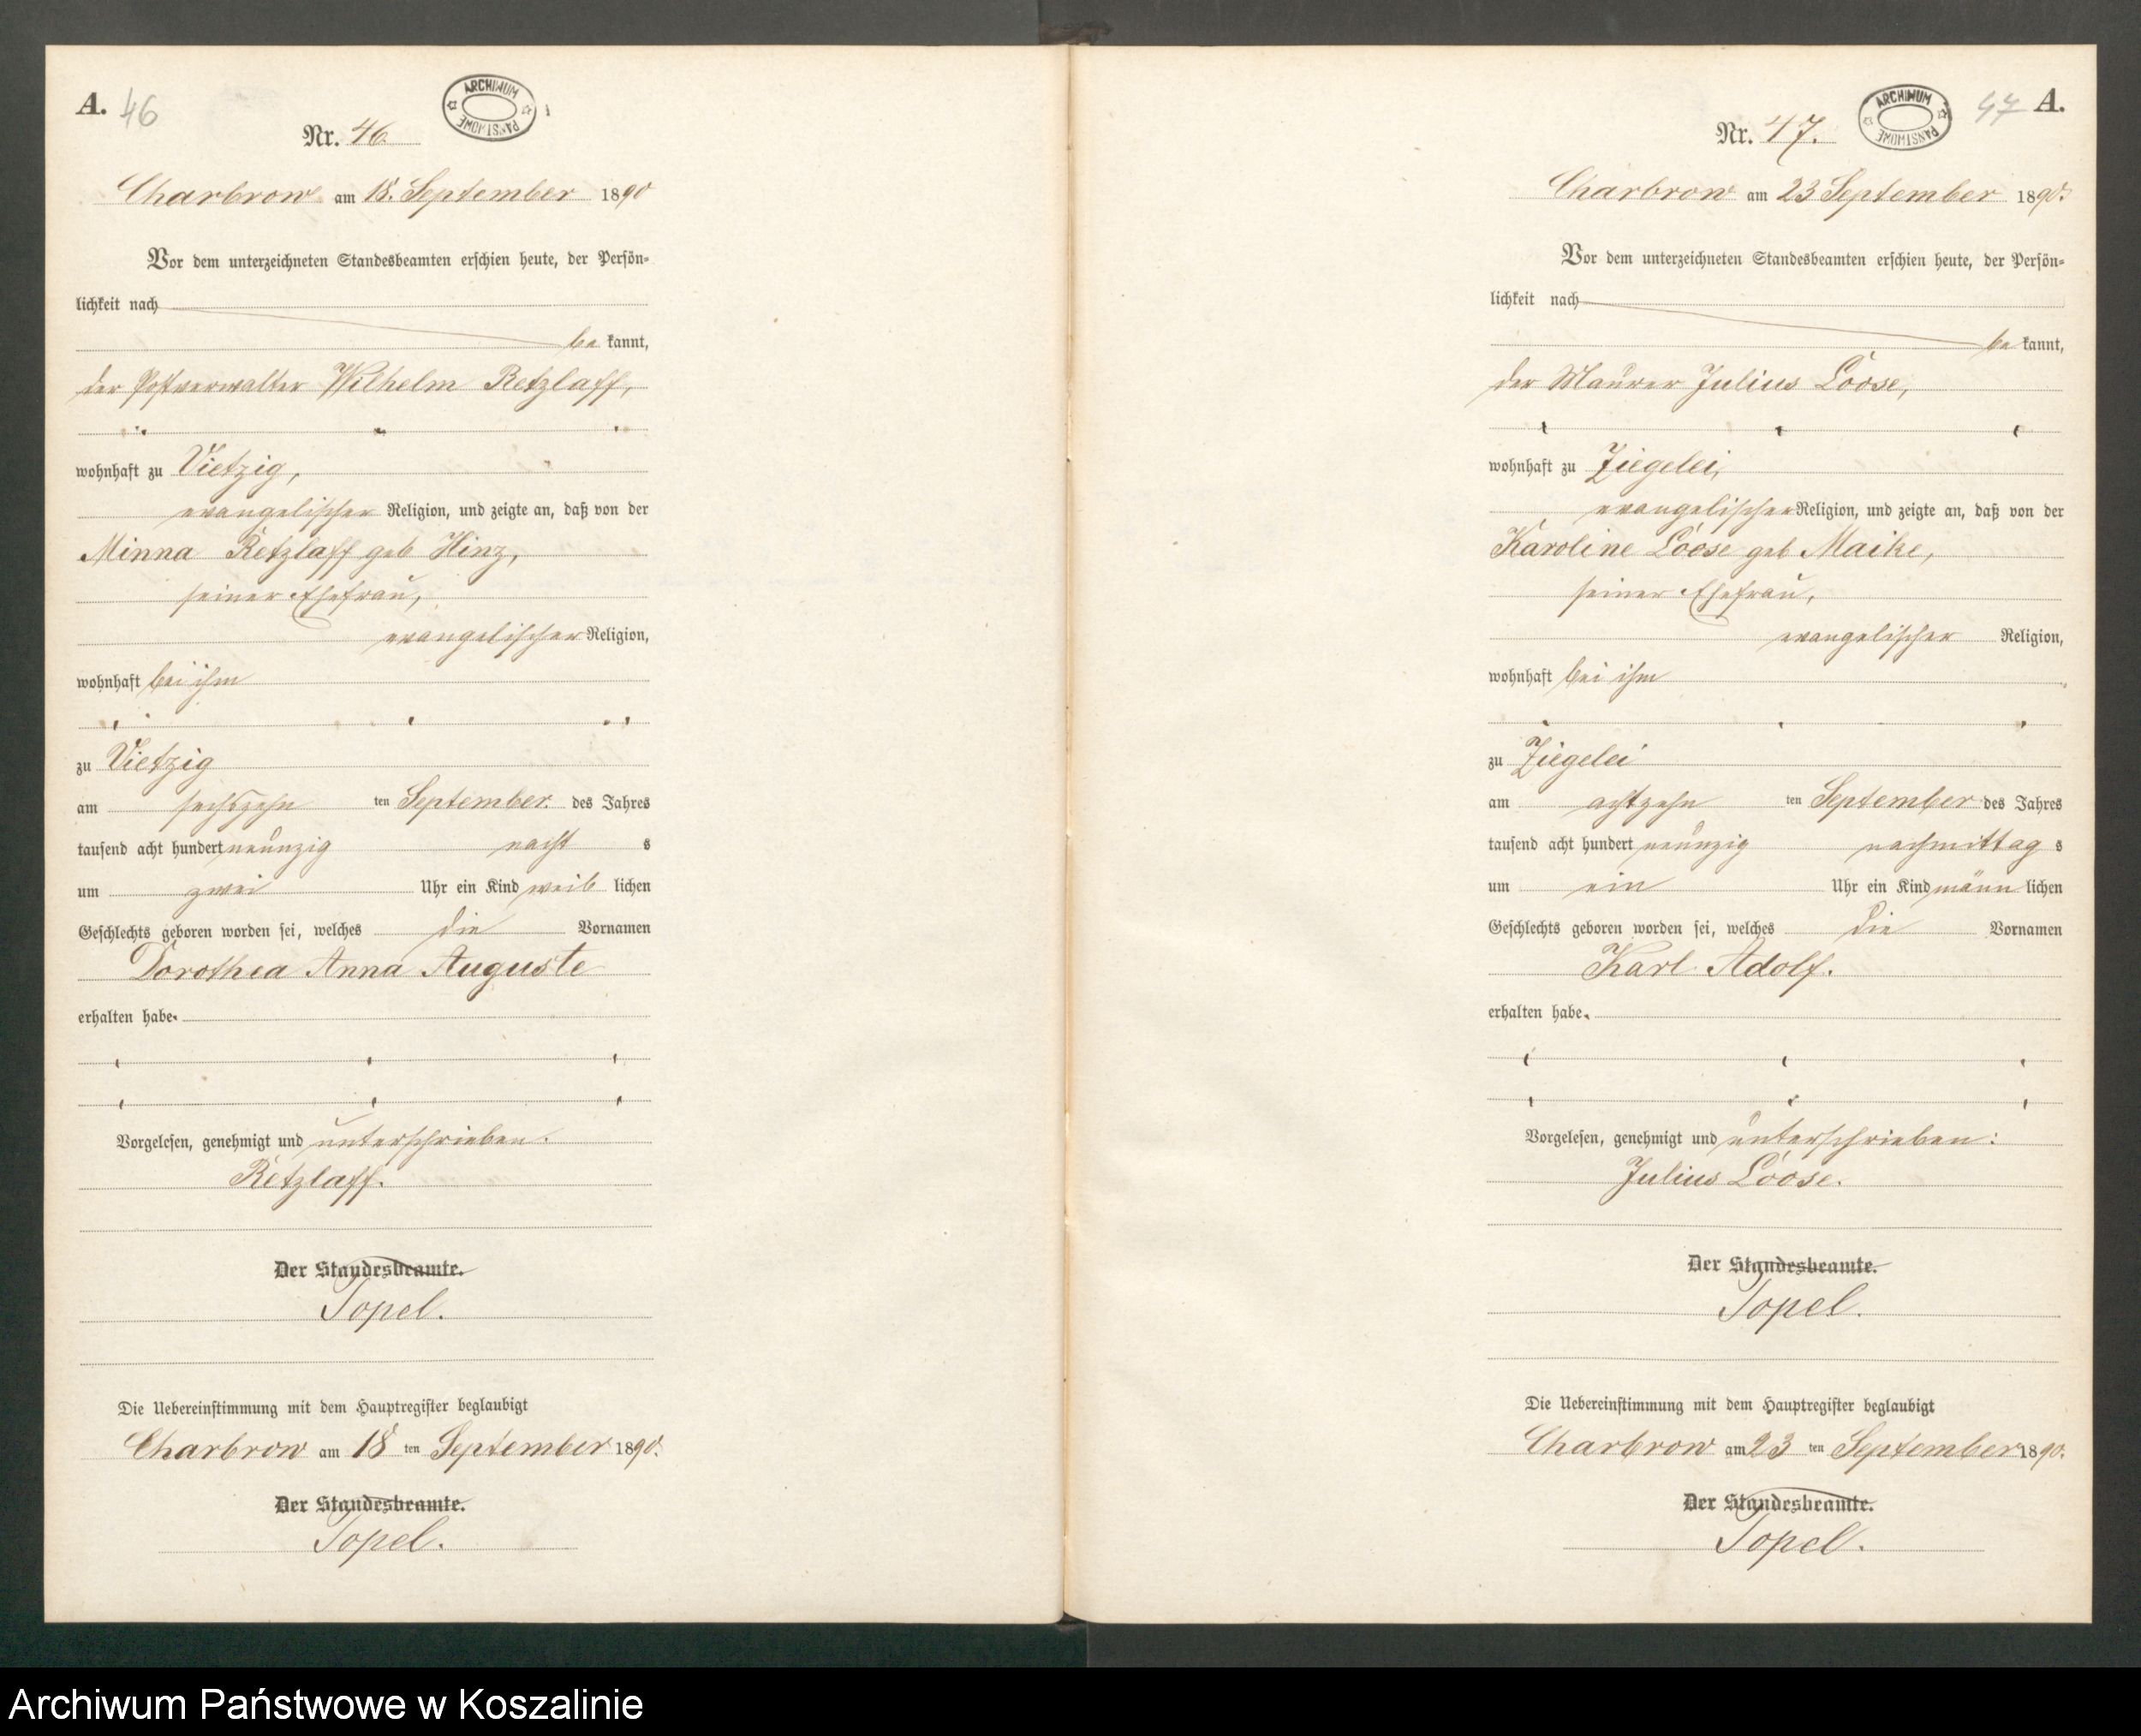 A. 46
ARCHIWUM PAŃSTWOWE
Nr. 46
Charbrow am 18. September 1890
Vor dem unterzeichneten Standesbeamten erschien heute, der Persön-
lichkeit nach
be kannt,
der Postverwalter Wilhelm Retzlaff,
wohnhaft zu Vietzig,
evangelischer Religion, und zeigte an, daß von der
Minna Retzlaff geb Hinz,
seiner Ehefrau,
evangelischer Religion,
wohnhaft bei ihm
zu Vietzig
am sechszehn ten September des Jahres
tausend acht hundert neunzig nacht s
um zwei Uhr ein Kind weib lichen
Geschlechts geboren worden sei, welches die Vornamen
Dorothea Anna Auguste
erhalten habe.
Vorgelesen, genehmigt und unterschrieben.
Retzlaff.
Der Standesbeamte.
Topel.
Die Uebereinstimmung mit dem Hauptregister beglaubigt
Charbrow am 18 ten September 1890.
Der Standesbeamte.
Topel.
47 A.
ARCHIWUM PAŃSTWOWE
Nr. 47.
Charbrow am 23 September 1890.
Vor dem unterzeichneten Standesbeamten erschien heute, der Persön-
lichkeit nach
be kannt,
der Maurer Julius Loose,
wohnhaft zu Ziegelei,
evangelischer Religion, und zeigte an, daß von der
Karoline Loose geb Maike,
seiner Ehefrau,
evangelischer Religion,
wohnhaft bei ihm
zu Ziegelei
am achtzehn ten September des Jahres
tausend acht hundert neunzig nachmittag s
um ein Uhr ein Kind männ lichen
Geschlechts geboren worden sei, welches die Vornamen
Karl Adolf.
erhalten habe.
Vorgelesen, genehmigt und unterschrieben:
Julius Loose.
Der Standesbeamte.
Topel.
Die Uebereinstimmung mit dem Hauptregister beglaubigt
Charbrow am 23 ten September 1890.
Der Standesbeamte.
Topel.
Archiwum Państwowe w Koszalinie